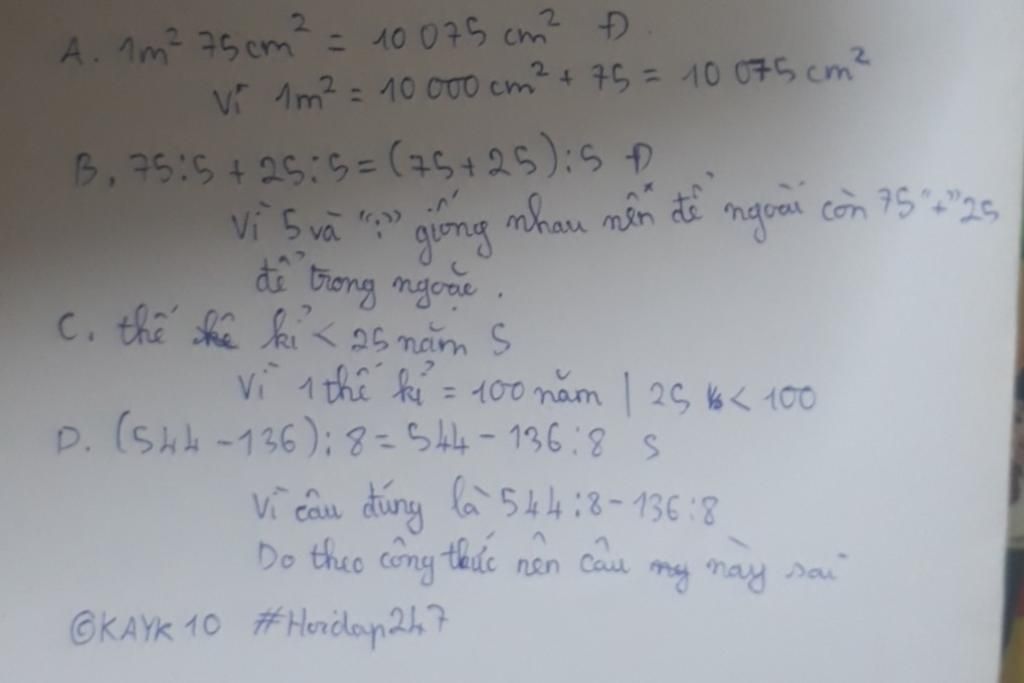 A. 1m² 75cm² = 10 075 cm² Đ.
Vì 1m² = 10 000 cm² + 75 = 10 075 cm²
B. 75:5 + 25:5 = (75+25):5 Đ
Vì 5 và ":" giống nhau nên để ngoài còn 75 "+" 25
để trong ngoặc.
C. thế kỉ < 25 năm S
Vì 1 thế kỉ = 100 năm | 25 < 100
D. (544 - 136) : 8 = 544 - 136 : 8 S
Vì câu đúng là 544 : 8 - 136 : 8
Do theo công thức nên câu này sai
@KAYK10 #Hoidap247